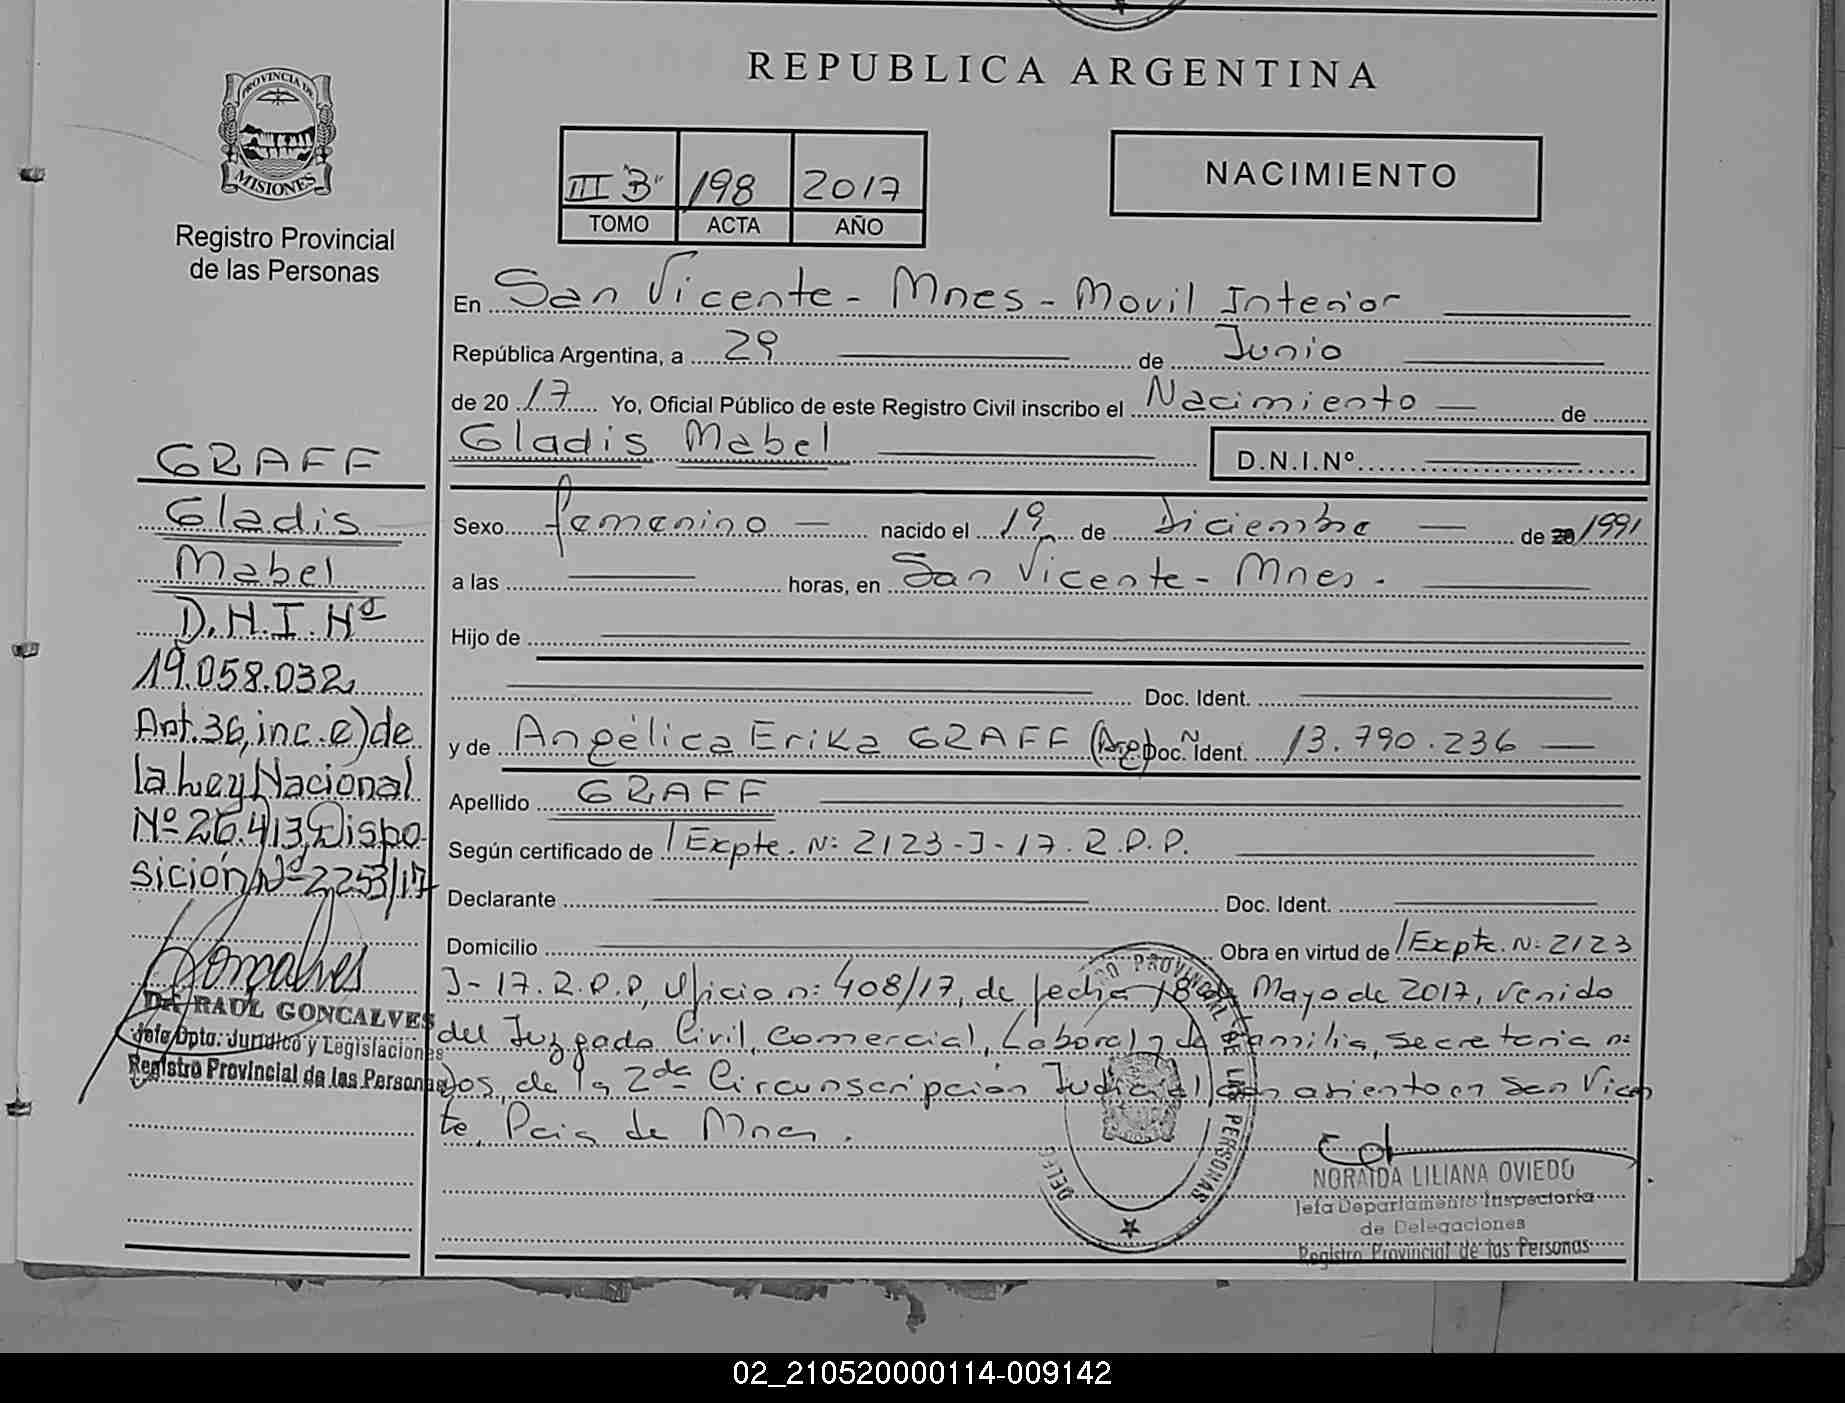 REPUBLICA ARGENTINA
PROVINCIA DE
MISIONES
Registro Provincial
de las Personas
III "B" 198 2017
TOMO ACTA AÑO
NACIMIENTO
En San Vicente - Mnes - Movil Interior
República Argentina, a 29 de Junio
de 2017 Yo, Oficial Público de este Registro Civil inscribo el Nacimiento de
Gladis Mabel D.N.I.Nº
Sexo femenino nacido el 19 de Diciembre de 20 1991
a las horas, en San Vicente - Mnes.
Hijo de
Doc. Ident.
y de Angélica Erika GRAFF (Arg) Doc. Ident. 13.790.236
Apellido GRAFF
Según certificado de Expte. Nº 2123-J-17.R.P.P.
Declarante Doc. Ident.
Domicilio Obra en virtud de Expte. Nº 2123
J-17.R.P.P, Oficio nº 408/17, de fecha 18 de Mayo de 2017, venido
del Juzgado Civil, Comercial, Laboral y de Familia, Secretaria nº
Dos, de la 2da Circunscripción Judicial con asiento en San Vicen
te, Pcia de Mnes.
GRAFF
Gladis
Mabel
D.N.I. Nº
19.058.032
Art. 36, inc. e) de
la Ley Nacional
Nº 26.413, Dispo-
sición Nº 2253/17
Goncalves
Dr. RAUL GONCALVES
Jefe Dpto. Jurídico y Legislaciones
Registro Provincial de las Personas
PROVINCIAL DE LAS PERSONAS
NORAIDA LILIANA OVIEDO
Jefa Departamento Inspectoría
de Delegaciones
Registro Provincial de las Personas
02_210520000114-009142